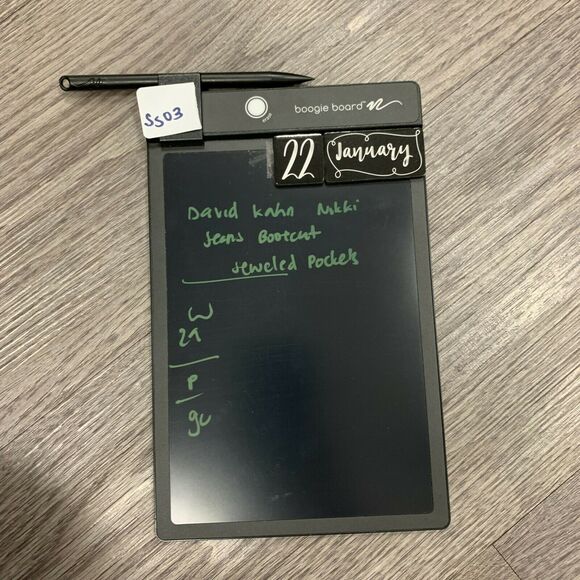 SS03
erase
boogie board
22 January
David Kahn Nikki
Jeans Bootcut
Jeweled Pockets